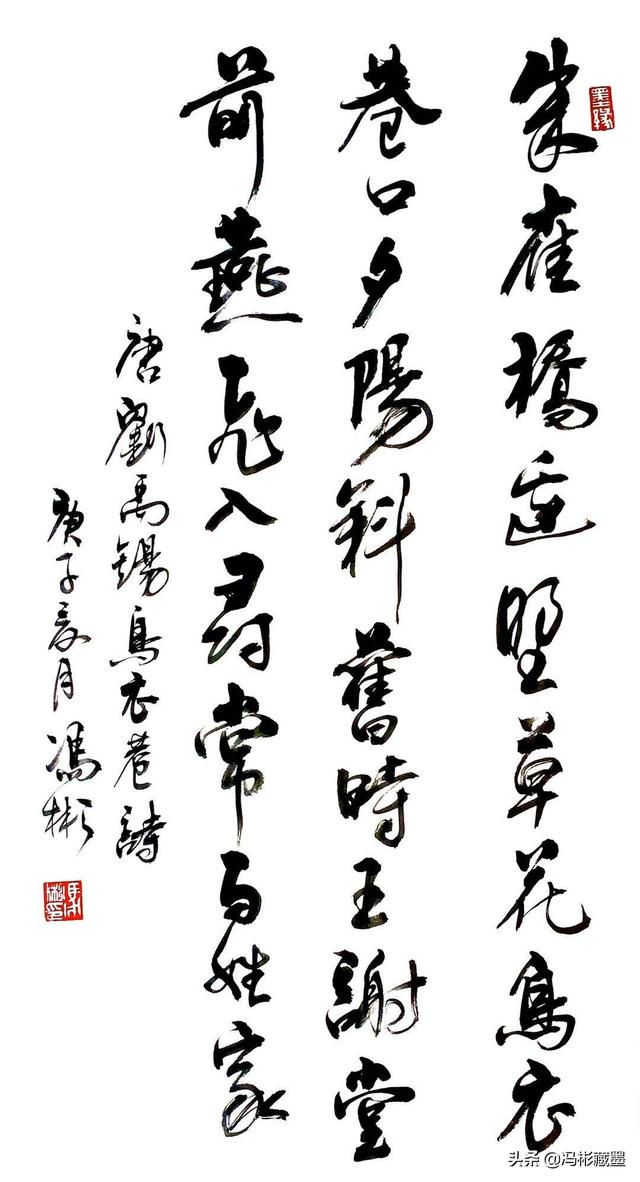 朱雀橋邊野草花烏衣
巷口夕陽斜舊時王謝堂
前燕飛入尋常百姓家
唐劉禹錫烏衣巷詩
庚子夏月馮彬
墨緣
馮彬印
头条 @冯彬藏墨